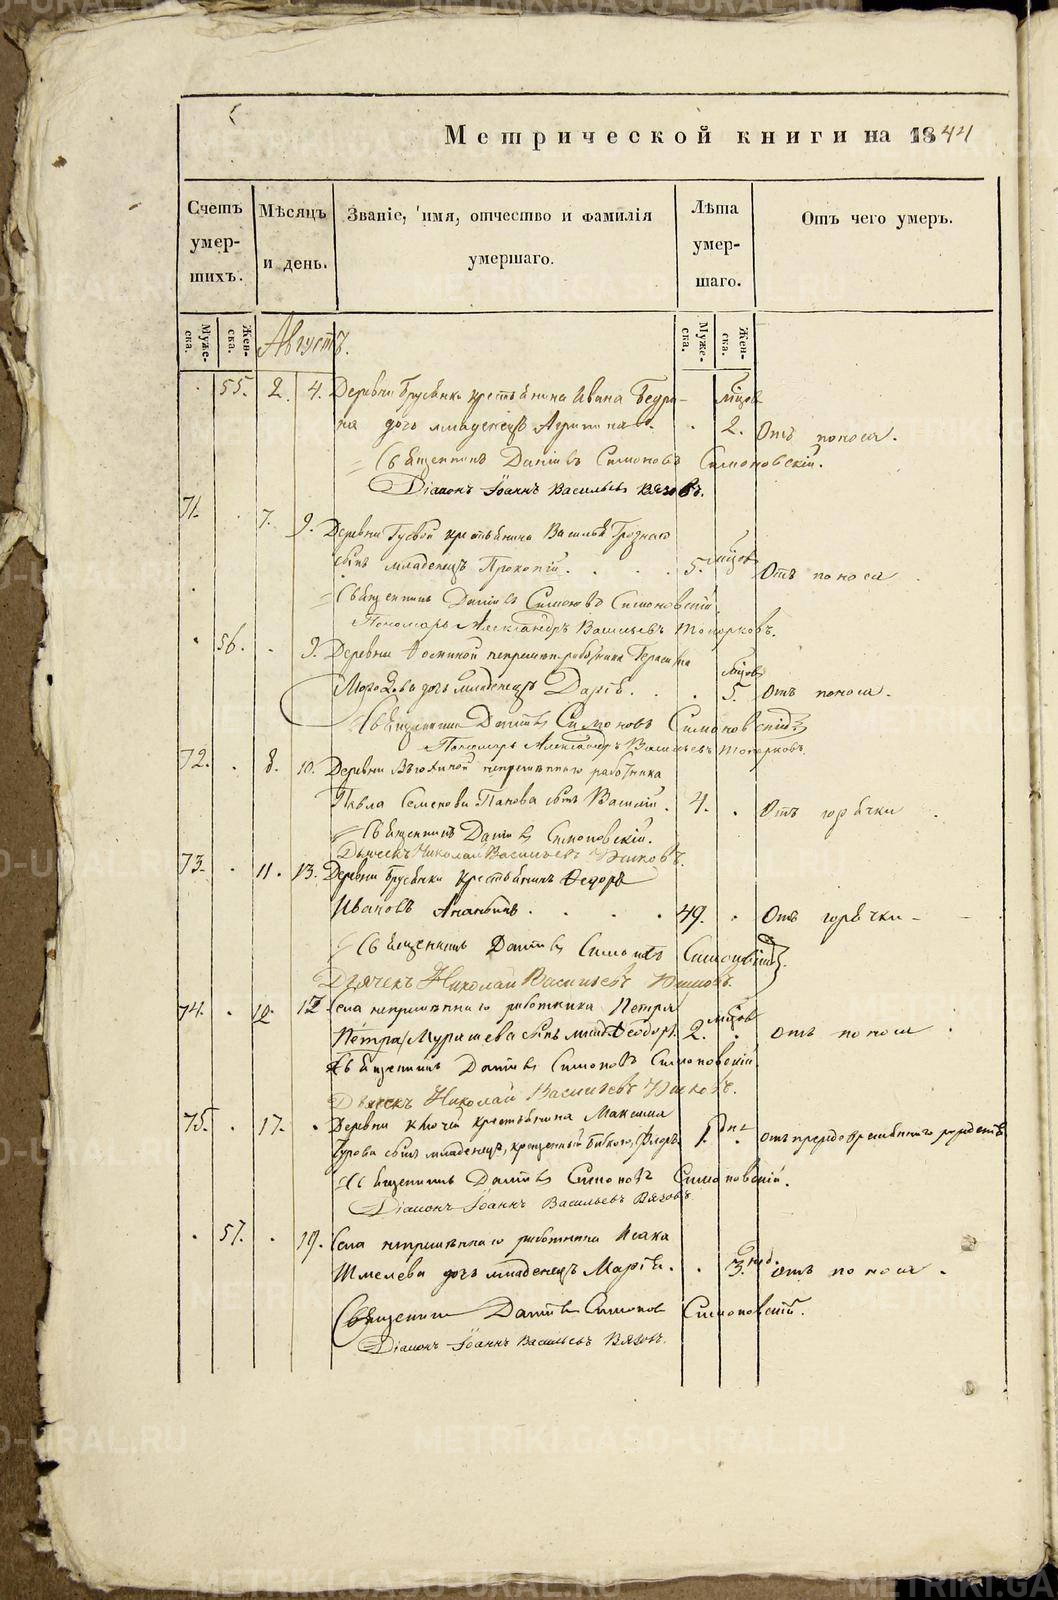 Метрической книги на 1844
Счетъ умер- шихъ.
Мѣсяцъ и день.
Званіе, имя, отчество и фамилія умершаго.
Лѣта умер- шаго.
Отъ чего умеръ.
Муже- ска.
Жен- ска.
Муже- ска.
Жен- ска.
Августъ.
55. 2. 4. Деревни Брусянки крестьянина Ивана Бедри-
на дочь младенецъ Агрипина. 2. мѣсяц Отъ поноса.
Священникъ Даніилъ Симоновъ Симоновскій.
Діаконъ Іоаннъ Васильевъ Вязовъ.
71. 7. 9. Деревни Гусевой крестьянина Василья Грознаго
сынъ младенецъ Прокопій. 5. Отъ поноса
Священникъ Даніилъ Симоновъ Симоновскій.
Пономарь Александръ Васильевъ Топорковъ.
56. 9. Деревни непремѣн. работника Герасима
Морозова дочь младенецъ Дарія. 5. Отъ поноса.
Священникъ Даніилъ Симоновъ Симоновскій
Пономарь Александръ Васильевъ Топорковъ.
72. 8. 10. Деревни непремѣннаго работника
Павла Семенова Панова сынъ Василій. 4. Отъ горячки
Священникъ Даніилъ Симоновскій.
Дьячекъ Николай Васильевъ
73. 11. 13. Деревни Брусянки крестьянинъ Ѳедоръ
Ивановъ Ананьинъ. 49. Отъ горячки
Священникъ Даніилъ Симоновъ Симоновскій.
Дьячекъ Николай Васильевъ
74. 10. 12 Села непремѣннаго работника Петра
Петра Мурашева сынъ млад. Ѳеодоръ. 2. Отъ поноса
Священникъ Даніилъ Симоновъ Симоновскій.
Дьячекъ Николай Васильевъ
75. 17. Деревни Ключи крестьянина Максима
Гурова сынъ младенецъ, крещенный бабкою, Флоръ 1. дня Отъ преждевременнаго рожденія
Священникъ Даніилъ Симоновъ Симоновскій.
Діаконъ Іоаннъ Васильевъ Вязовъ
57. 19. Села непремѣннаго работника Исака
Шмелева дочь младенецъ Марія. 3. нед. отъ поноса.
Священникъ Даніилъ Симоновъ Симоновскій.
Діаконъ Іоаннъ Васильевъ Вязовъ.
METRIKI.GASO-URAL.RU